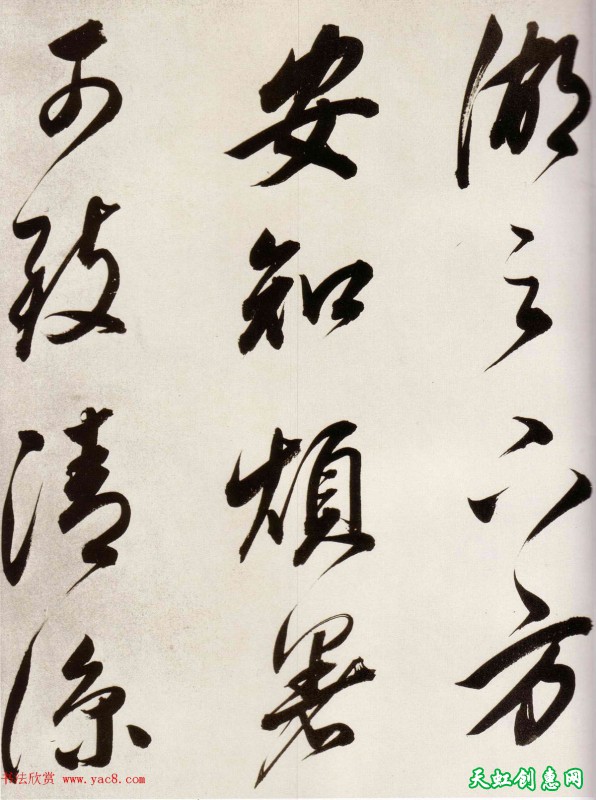 湖之方
安知煩暑
可致清涼
书法欣赏 www.yac8.com
天虹创惠网